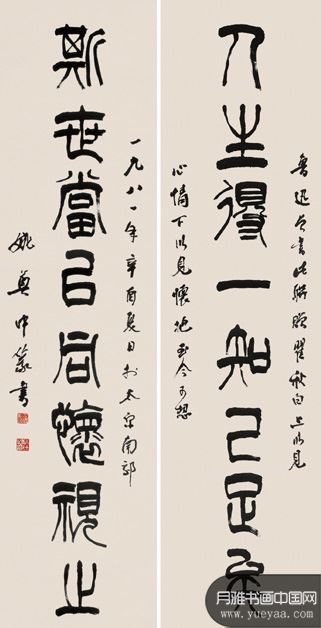 魯迅曾書此聯贈瞿秋白上以見
人生得一知己足矣
心情下以見懷抱至今可想
一九八一年辛酉夏日於太原南郊
斯世當以同懷視之
姚奠中篆書
月雅书画中国网
www.yueyaa.com